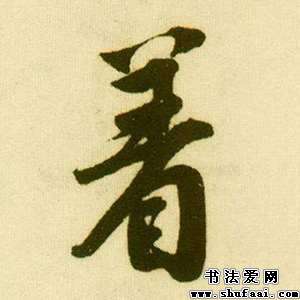 着
书法爱网
www.shufaai.com